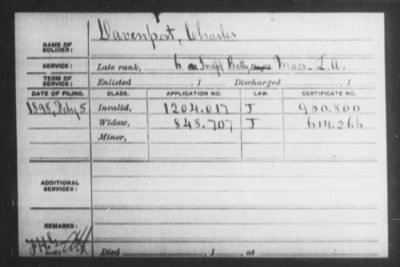 Davenport, Charles
NAME OF SOLDIER:
SERVICE: Late rank, Batty Mass. L.A.
TERM OF SERVICE: Enlisted , 1 Discharged , 1
DATE OF FILING. CLASS. APPLICATION NO. LAW. CERTIFICATE NO.
1898, Feby 5 Invalid, 1204.017 J 950.800
Widow, 848.707 J 614.266
Minor,
ADDITIONAL SERVICES:
REMARKS:
Died , 1 , at